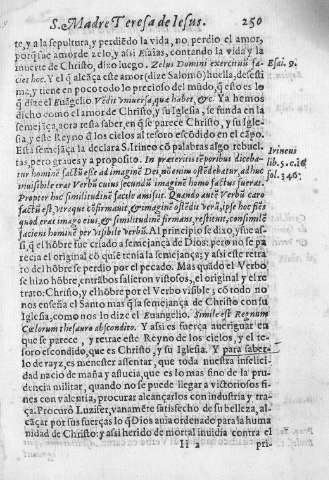 S. Madre Teresa de Iesus. 250
te, y a la sepultura, y perdiẽdo la vida, no perdio el amor,
porque amor de zelo, y assi Esaias, contando la vida y la
muerte de Christo, dixo luego. Zelus Domini exercituũ fa- Esai. 9.
ciet hoc. Y el q̃ alcãça este amor (dize Salomõ) huella, desesti
ma, y tiene en poco todo lo precioso del mũdo, q̃ esto es lo
q̃ dize el Euãgelio Vẽdit vniuersa quæ habet, &c. Ya hemos
dicho como el amor de Christo, y su Iglesia, se funda en la
semejãça, aora resta saber, en q̃ se parece Christo, y su Igle-
sia, y este Reyno d̃ los cielos al tesoro escõdido en el cãpo.
Esta semejãça la declara S. Irineo cõ palabras algo rebuel- Irineus
tas, pero graues y a proposito. In præteritis tẽporibus diceba- lib. 5. c. 16
tur hominẽ factũ esse ad imaginẽ Dei, nõ ostẽdebatur, adhuc fol. 346.
inuisibile erat Verbũ cuius secundũ imaginẽ homo factus fuerat,
Propter hoc similitudinẽ facile amisit. Quando autẽ Verbũ caro
factũ est, vtraque cõfirmauit, & imaginẽ ostẽdit verã, ipse hoc fiẽs
quod erat imago eius, & similitudinẽ firmans, restituit, consimilẽ
faciens hominẽ per visibile verbũ. Al principio se dixo, y fue as-
si, q̃ el hõbre fue criado a semejança de Dios: pero no se pa
recia el original cõ quiẽ tenia la semejança; y assi este retra
to del hõbre se perdio por el pecado. Mas quãdo el Verbo
se hizo hõbre, entrãbos salierõ vistosos, el original y el re
trato. Christo, y el hõbre por el Verbo visible; cõ todo no
nos enseña el Santo mas q̃ la semejança de Christo con su
Iglesia, como nos lo dize el Euangelio. Simile est Regnum
Cælorum thesauro abscondito. Y assi es fuerça aueriguar en
que se parece, y retrae este Reyno de los cielos, y el te-
soro escondido, que es Christo, y su Iglesia. Y para saber-
lo de rayz, es menester assentar, que toda nuestra infelici-
dad nacio de maña y astucia, que es lo mas fino de la pru-
dencia militar, quando no se puede llegar a victoriosos fi-
nes con valentia, procurar alcançarlos con industria y tra-
ça. Procurò Luzifer, vanamẽte satisfecho de su belleza, al-
cãçar por sus fuerças lo q̃ Dios auia ordenado para la huma
nidad de Christo: y assi herido de mortal inuidia contra el
Ii 2 pri-